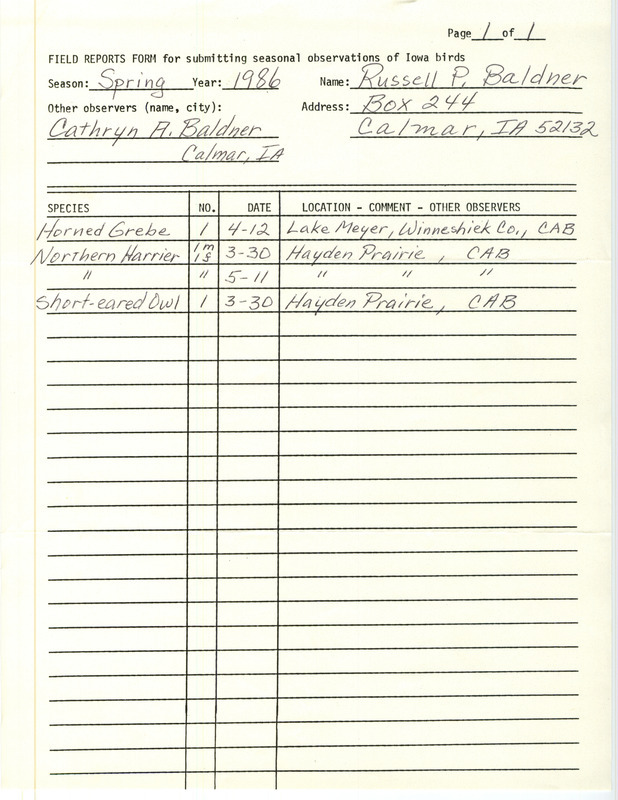 Page 1 of 1
FIELD REPORTS FORM for submitting seasonal observations of Iowa birds
Season: Spring Year: 1986 Name: Russell P. Baldner
Other observers (name, city): Address: Box 244
Cathryn A. Baldner Calmar, IA 52132
Calmar, IA
SPECIES NO. DATE LOCATION - COMMENT - OTHER OBSERVERS
Horned Grebe 1 4-12 Lake Meyer, Winneshiek Co., CAB
Northern Harrier 1m 1f 3-30 Hayden Prairie, CAB
" " 5-11 " " "
Short-eared Owl 1 3-30 Hayden Prairie, CAB